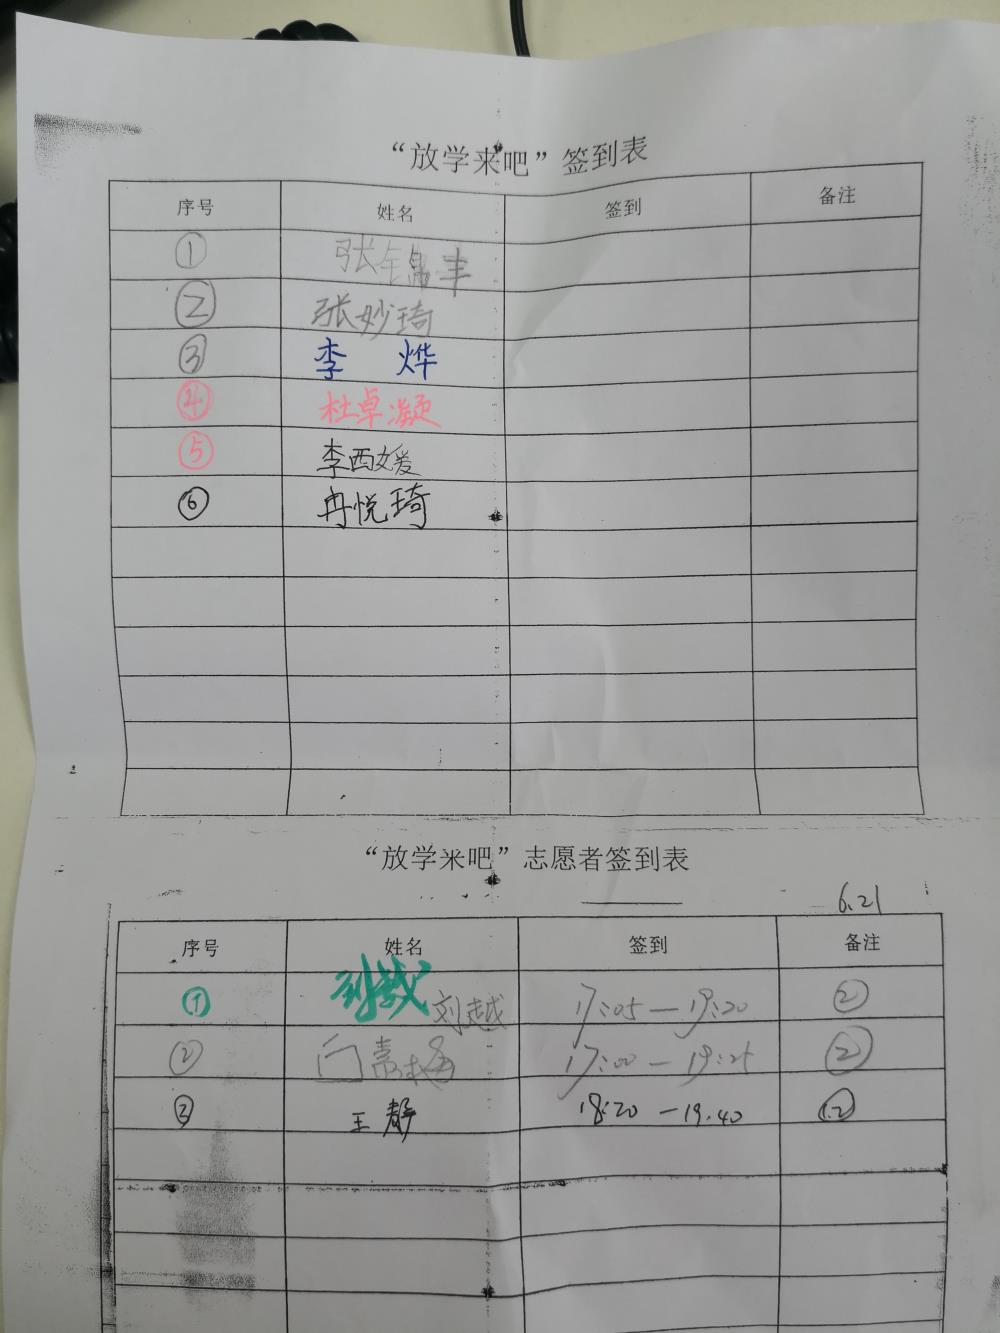 “放学来吧”签到表
序号 姓名 签到 备注
① 张锦丰
② 张妙琦
③ 李 烨
④ 杜卓凝
⑤ 李西媛
⑥ 冉悦琦
“放学来吧”志愿者签到表
6.21
序号 姓名 签到 备注
① 刘越 17:05—19:20 ②
② 白素梅 17:00—19:25 ②
③ 王静 18:20—19.40